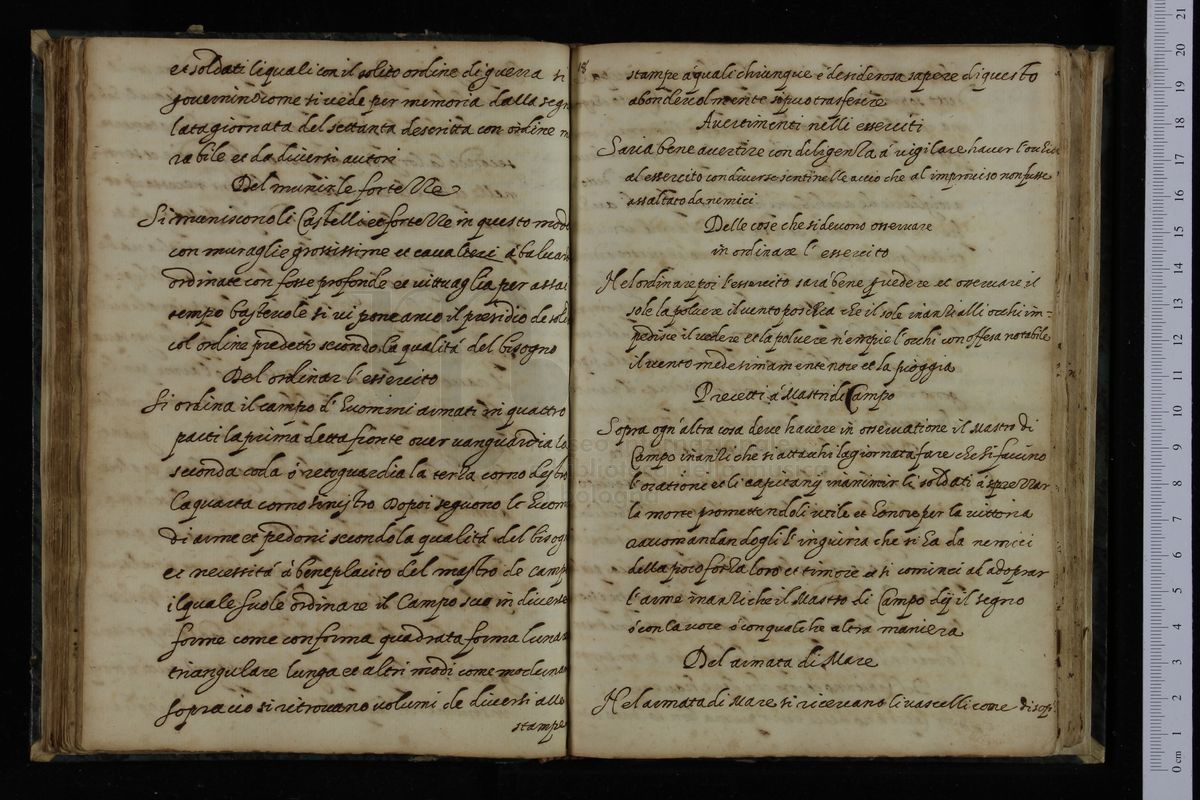 et soldati li quali con il solito ordine di guerra si
governino come si vede per memoria dalla segn
lata giornata del settanta descritta con ordine m
rabile et da diversi autori
Del munir le fortezze
Si muniscono li Castelli et fortezze in questo modo
con muraglie grossissime et cavalieri à baluard
ordinate con fosse profonde et vittuaglia per assai
tempo bastevole si vi pone anco il presidio de sold
col ordine predetto secondo la qualità del bisogno
Del ordinar l'essercito
Si ordina il campo d'huomini armati in quattro
parti la prima detta fronte over vanguardia la
seconda coda ò retoguardia la terza corno destro
la quarta corno sinistro dopoi seguono le huom
di arme et pedoni secondo la qualità del bisog
et necessità à beneplacito del mastro de camp
il quale suole ordinare il Campo suo in diverse
forme come con forma quadrata forma lunar
triangulare lunga et altri modi come moderna
sopra ciò si ritrovano volumi de diversi alle
stampe
18
stampe à quale chiunque è desiderosa sapere di questo
abondevolmente si può trasferire
Avertimenti nelli esserciti
Saria bene avertire con diligenza à vigilare haver l'occhio
al essercito con diverse sentinelle acciò che al improviso non fusse
assaltato da nemici
Delle cose che si devono osservare
in ordinare l'essercito
Nel ordinare poi l'essercito sarà bene prevedere et osservare il
sole la polvere il vento poscia che il sole inanzi alli occhi im=
pedisce il vedere et la polvere n'empie l'occhi con offesa notabile
il vento medesimamente noce et la pioggia
Precetti à Mastri di Campo
Sopra ogn'altra cosa deve havere in osservatione il Mastro di
Campo inanzi che si attacchi la giornata fare che si faccino
l'oratione et li capitanij inanimir li soldati à sprezzar
la morte promettendoli utile et honore per la vittoria
raccomandandogli l'ingiuria che si ha da nemici
della poco forza loro et timore et si cominci ad adoprar
l'arme inanzi che il Mastro di Campo dij il segno
ò con la voce ò con qualche altra maniera
Del armata di Mare
Nel armata di Mare si ricercano li vascelli come di sopr